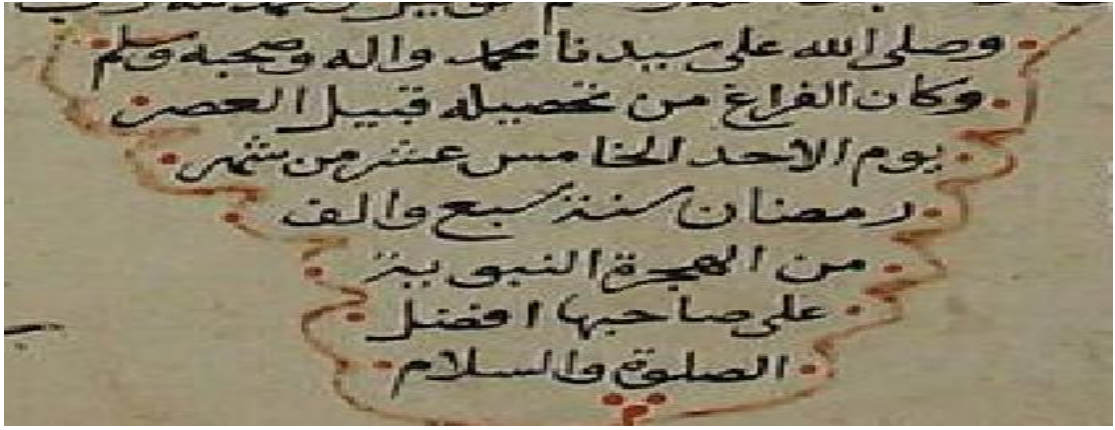 وصلى الله على سيدنا محمد واله وصحبه وسلم
وكان الفراغ من تحصيله قبيل العصر
يوم الاحد الخامس عشر من شهر
رمضان سنة سبع والف
من الهجرة النبوية
على صاحبها افضل
الصلوة والسلام
م